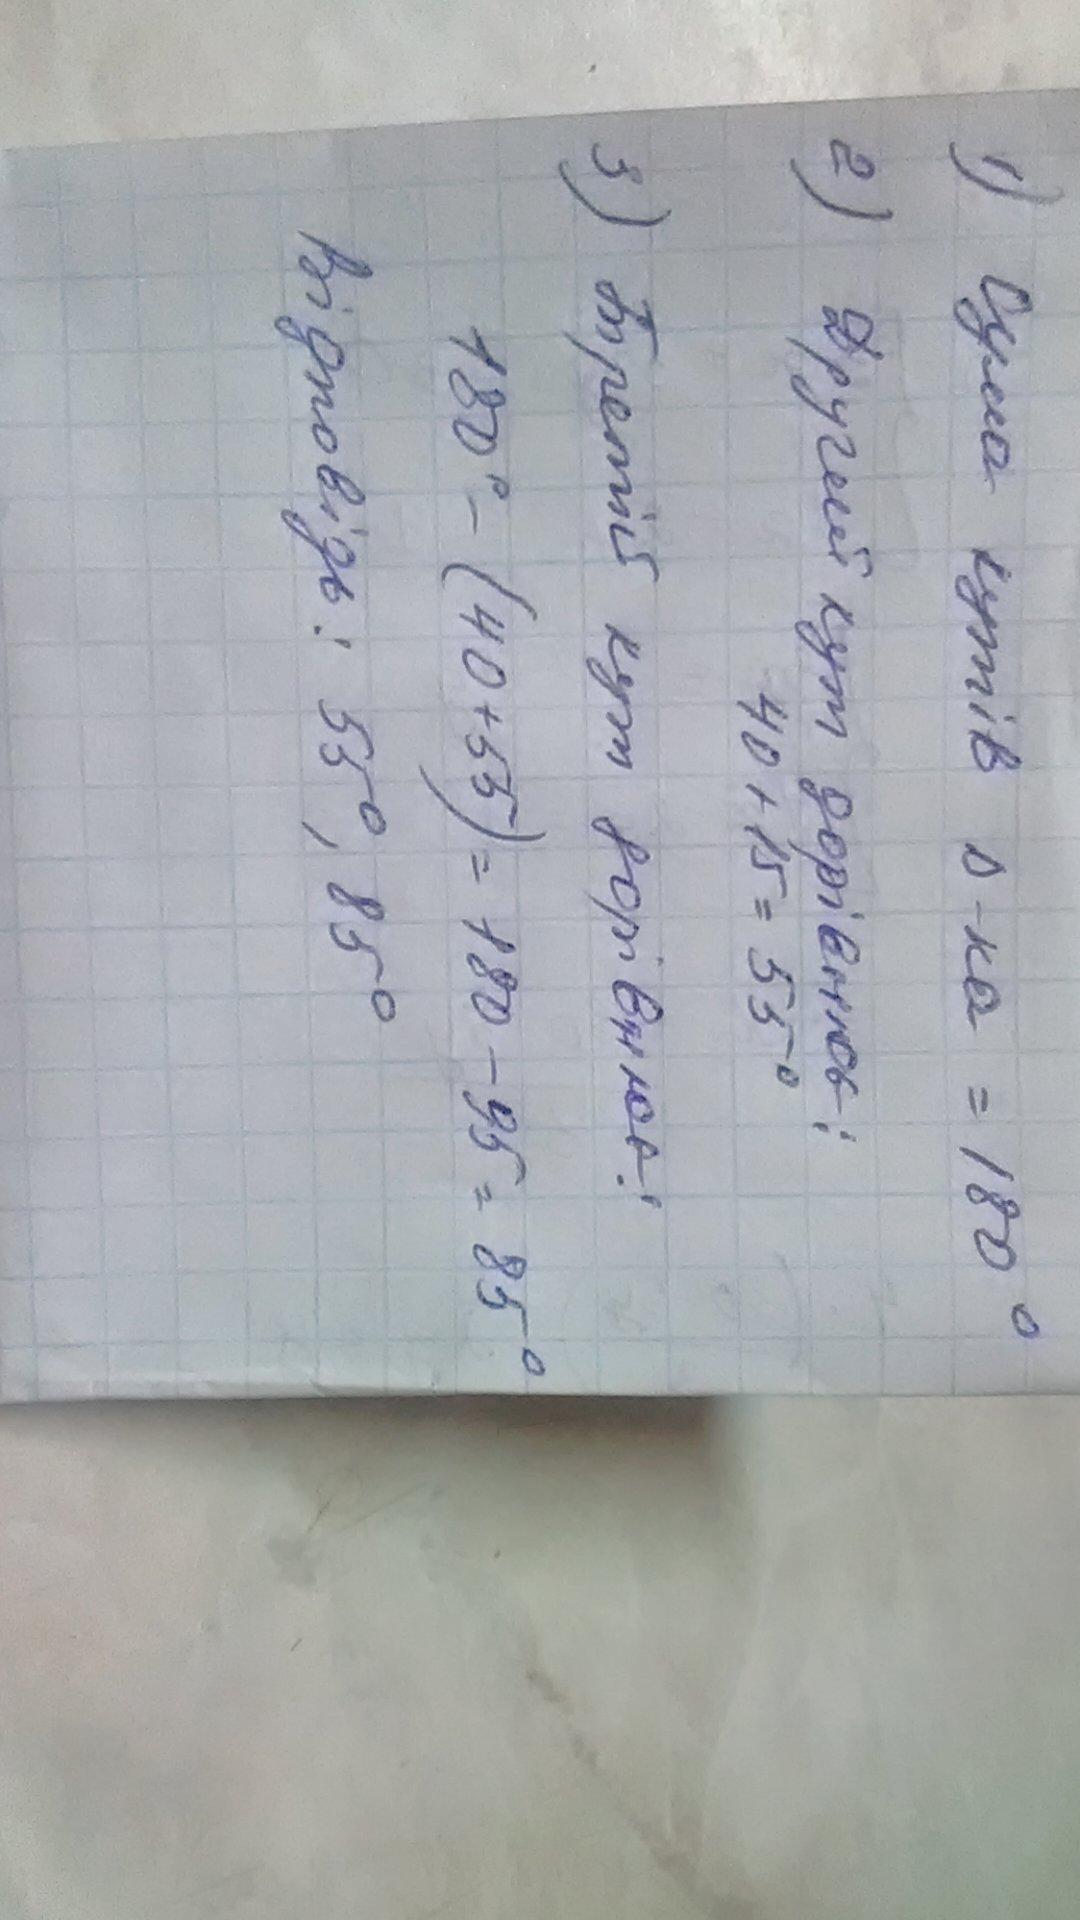 1) Сума кутів Δ-ка = 180°
2) Другий кут дорівнює:
40+15=55°
3) Третій кут дорівнює:
180°-(40+55)=180-95=85°
Відповідь: 55°, 85°